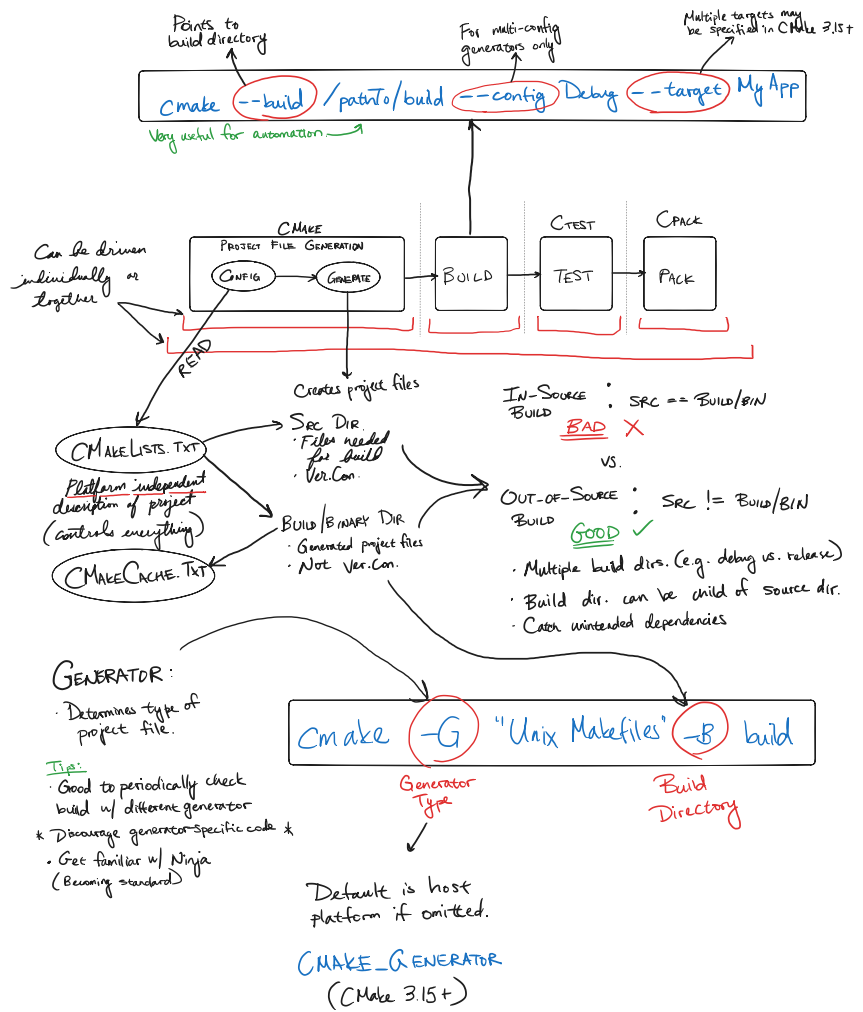 Points to
build directory
For multi-config
generators only
Multiple targets may
be specified in CMake 3.15+
cmake --build /pathTo/build --config Debug --target My App
Very useful for automation
Can be driven
individually or
together
CMAKE
PROJECT FILE GENERATION
CONFIG
GENERATE
BUILD
CTEST
TEST
CPACK
PACK
READ
CMAKELISTS.TXT
Platform independent
description of project
(controls everything)
CMAKECACHE.TXT
Creates project files
SRC DIR.
· Files needed
for build
· Ver.Con.
BUILD/BINARY DIR
· Generated project files
· Not Ver.Con.
IN-SOURCE
BUILD
: SRC == BUILD/BIN
BAD X
VS.
OUT-OF-SOURCE
BUILD
: SRC != BUILD/BIN
GOOD ✓
· Multiple build dirs. (e.g. debug vs. release)
· Build dir. can be child of source dir.
· Catch unintended dependencies
GENERATOR:
· Determines type of
project file.
Tips:
· Good to periodically check
build w/ different generator
* Discourage generator-specific code *
· Get familiar w/ Ninja
(Becoming standard)
cmake -G "Unix Makefiles" -B build
Generator
Type
Build
Directory
Default is host
platform if omitted.
CMAKE_GENERATOR
(CMake 3.15+)